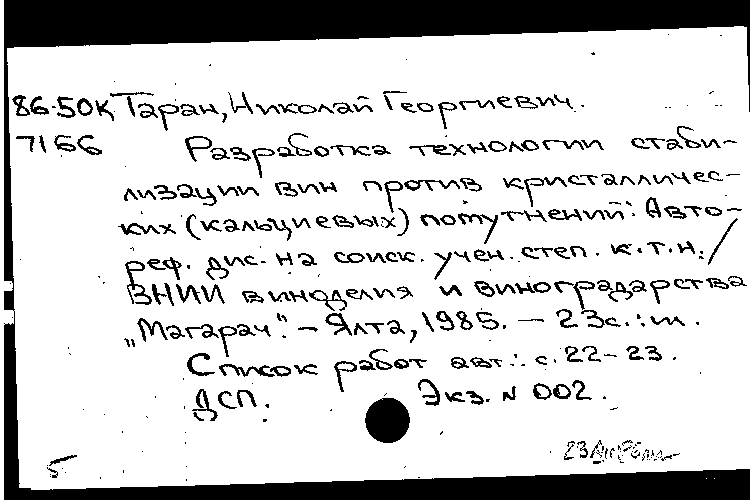 86-50К Таран, Николай Георгиевич.
7166 Разработка технологии стаби-
лизации вин против кристалличес-
ких (кальциевых) помутнений: Авто-
реф. дис. на соиск. учен. степ. к.т.н. /
ВНИИ виноделия и виноградарства
„Магарач". – Ялта, 1985. – 23с.: ил.
Список работ авт.: с. 22–23.
ДСП. Экз. N 002.
5